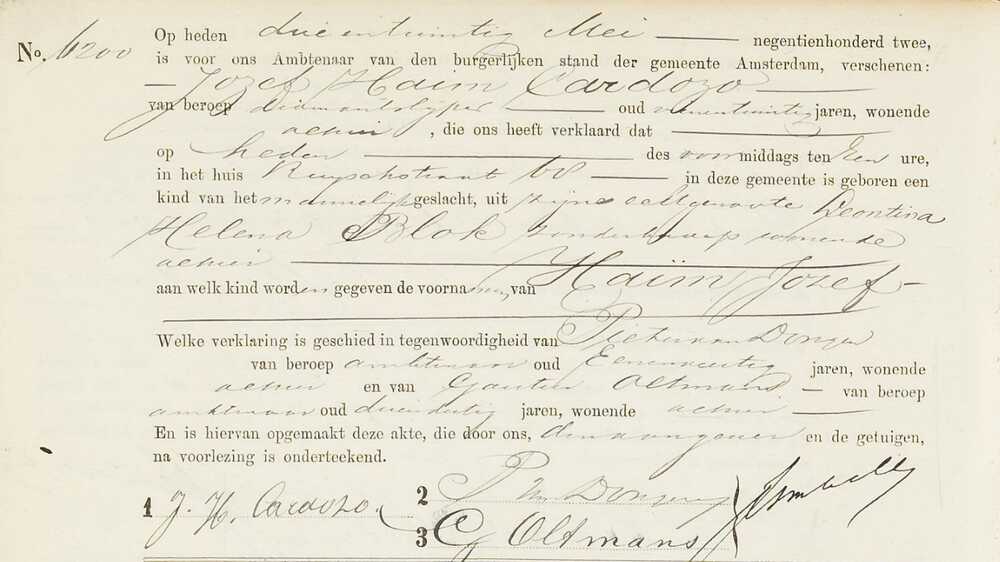 No. 6200
Op heden drie en twintig Mei negentienhonderd twee,
is voor ons Ambtenaar van den burgerlijken stand der gemeente Amsterdam, verschenen:
Jozef Haim Cardozo
van beroep diamantslijper oud jaren, wonende
alhier, die ons heeft verklaard dat
op heden des voormiddags ten Een ure,
in het huis Ruyschstraat in deze gemeente is geboren een
kind van het mannelijk geslacht, uit zijne echtgenoote Leontina
Helena Blok zonder beroep wonende
alhier
aan welk kind worden gegeven de voornamen van Haïm Jozef
Welke verklaring is geschied in tegenwoordigheid van Pieter van Dongen
van beroep ambtenaar oud Eenenveertig jaren, wonende
alhier en van Oltmans van beroep
ambtenaar oud drieendertig jaren, wonende alhier
En is hiervan opgemaakt deze akte, die door ons, den aangever en de getuigen,
na voorlezing is onderteekend.
1 J. H. Cardozo. 2 P van Dongen
3 G Oltmans